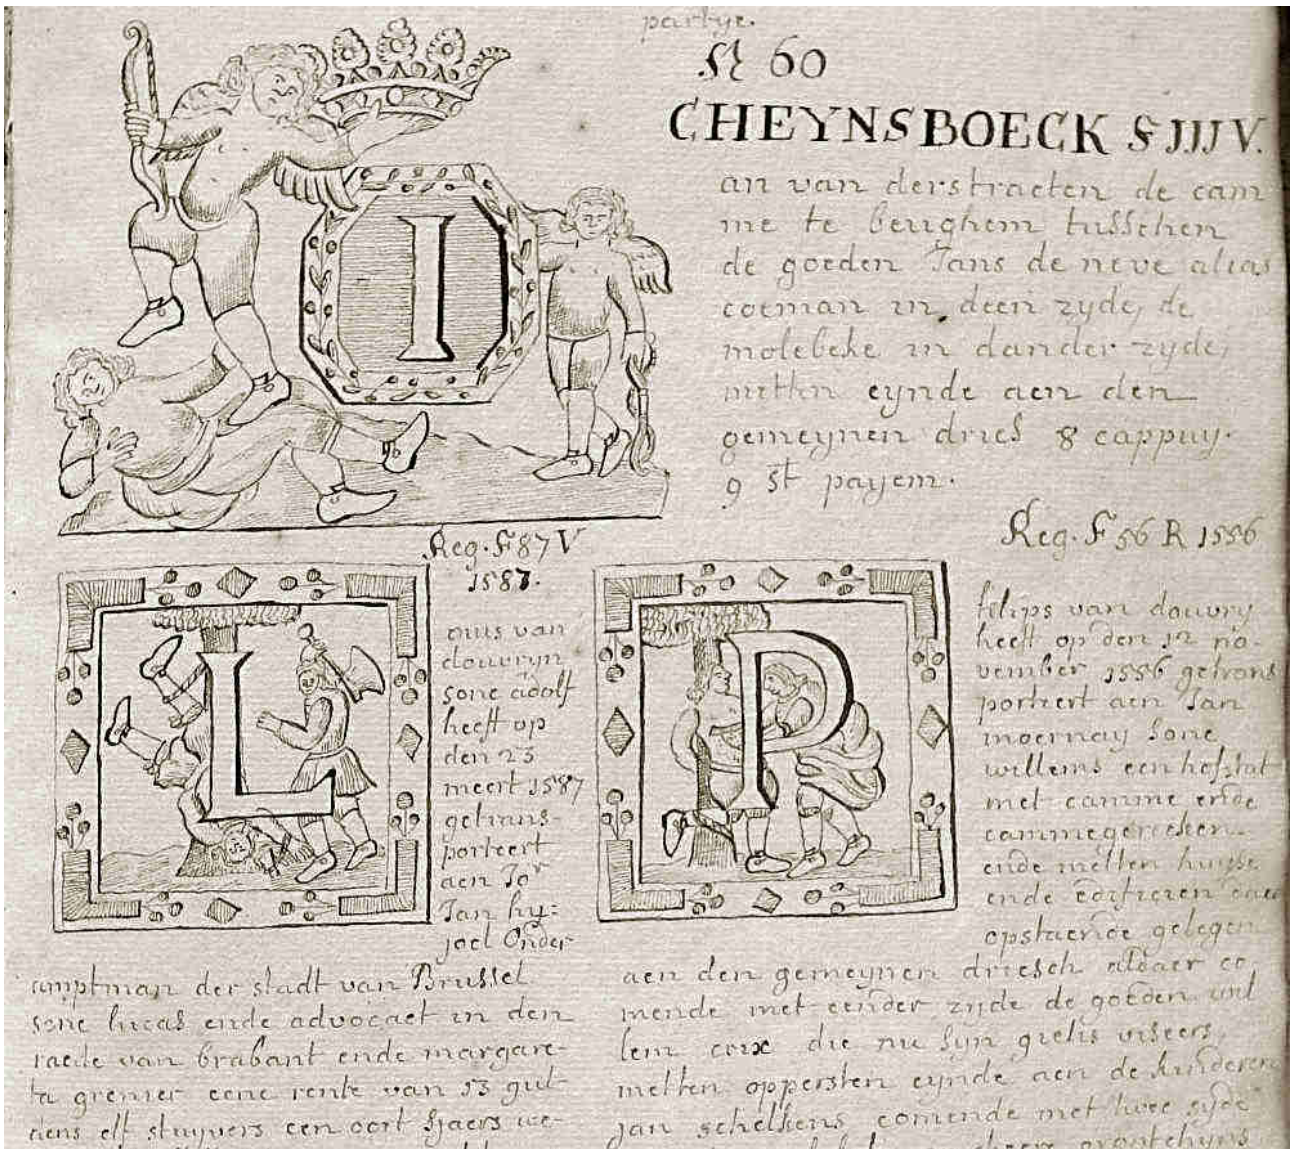 partye.
N 60
CHEYNSBOECK F IIJ V.
I
an van derstraeten de cam
me te beughem tusschen
de goeden Jans de neve alias
coeman in deen zyde, de
molebeke in dander zyde,
metten eynde aen den
gemeynen dries 8 cappuy.
9 st payem.
Reg. F 87 V
1587.
L
ouis van
douvryn
sone adolf
heeft op
den 23
meert 1587
getrans-
porteert
aen Jor
Jan hy=
joel Onder
amptman der stadt van Brussel
sone lucas ende advocaet in den
raede van brabant ende margare-
ta grenier eene rente van 53 gul-
dens elf stuyvers een oort sjaers
Reg. F 56 R 1556
P
felips van douvry
heeft op den 12 no-
vember 1556 getrans
porteert aen Jan
moernay sone
willems een hofstat
met camme ende
cammegereeken
ende metten huyse
ende
opstaende gelegen
aen den gemeynen driesch aldaer co
mende met eender zyde de goeden wil
lem coix die nu syn gielis viseers,
metten oppersten eynde aen de kinderen
jan schelkens comende met twee syde
grontchyns